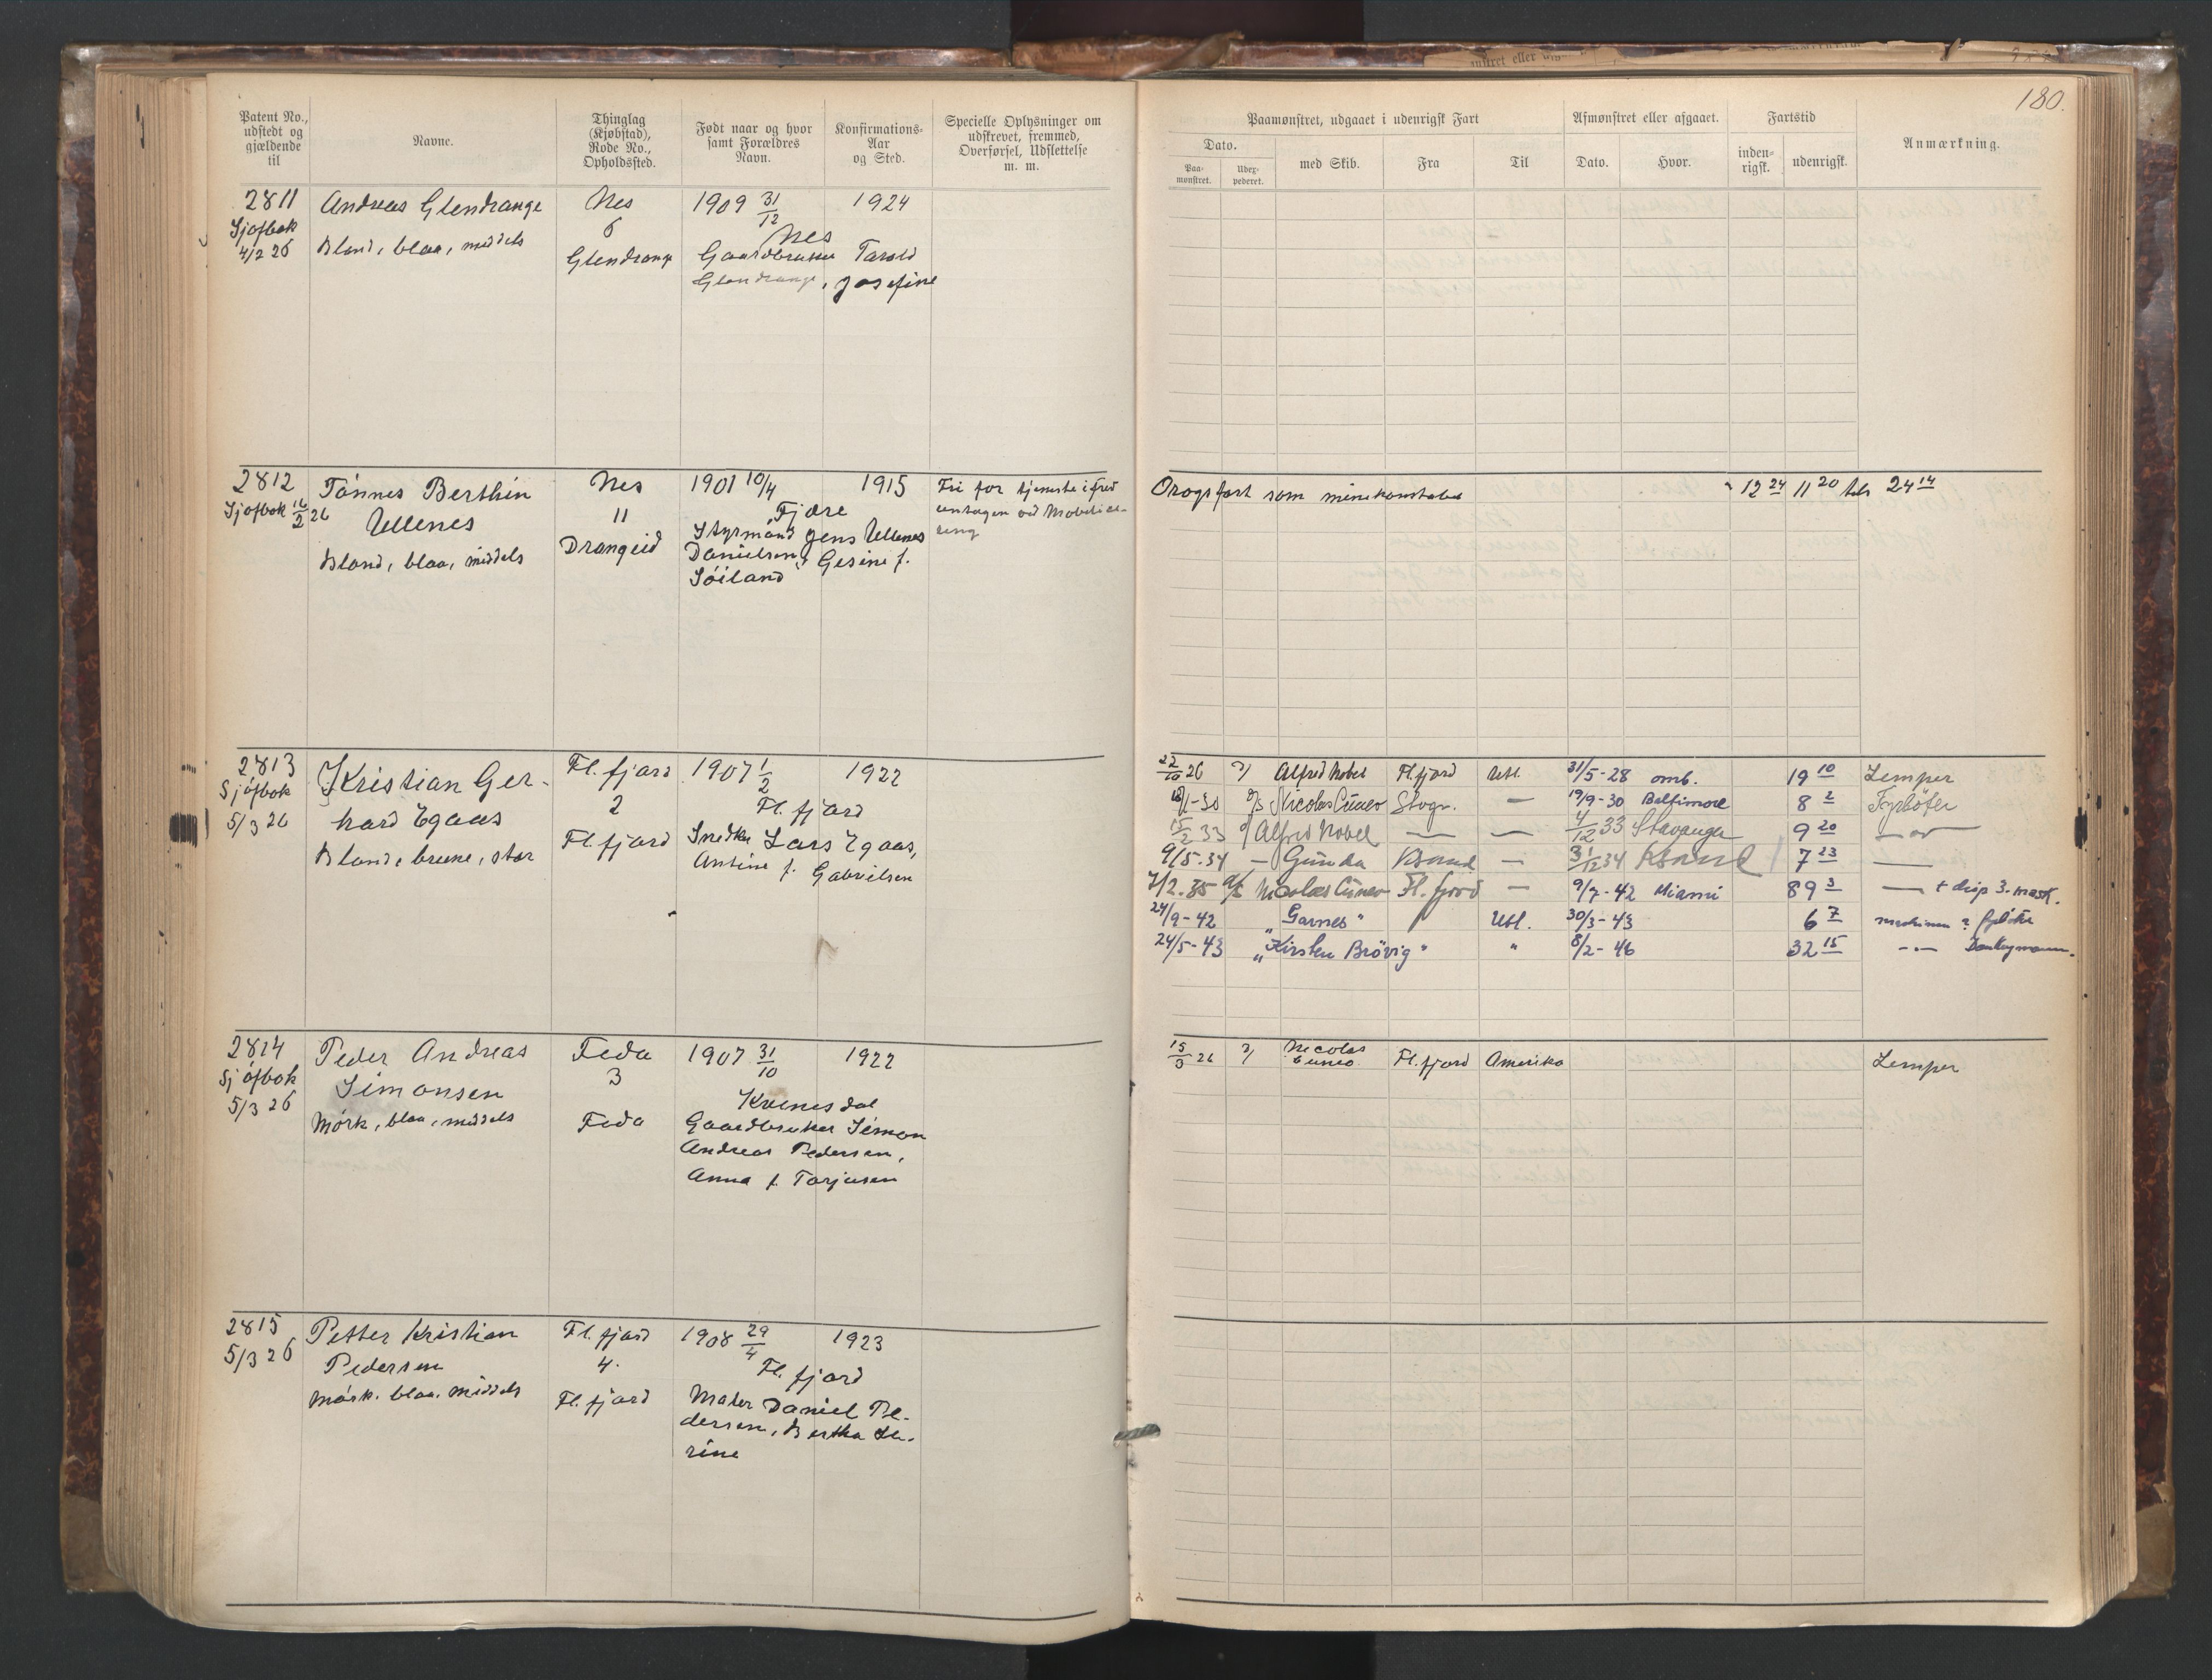 180.
Patent No., udstedt og gjældende til
Navne.
Thinglag (Kjøbstad), Rode No., Opholdssted.
Født naar og hvor samt Forældres Navn.
Konfirmations-Aar og Sted.
Specielle Oplysninger om udskrevet, fremmed, Overførsel, Udslettelse m. m.
Paamønstret, udgaaet i udenrigsk Fart
Afmønstret eller afgaaet.
Fartstid
Anmærkning.
Dato.
Paa-mønstret.
Udex-pederet.
med Skib.
Fra
Til
Dato.
Hvor.
inden-rigsk.
udenrigsk.
2811 Andreas Glendrange Nes 1909 31/12 1924
Sjøfbok 6 Nes
4/2 26 Blond, blaa, middels Glendrange Gaardbruker Tarald
Glendrange, Josefine
2812 Tønnes Berthin Nes 1901 10/4 1915 Fri for tjeneste i fred
Sjøfbok 16/2 26 Ullenes 11 Fjære
Blond, blaa, middels Drangeid Styrmand Jens Ullenes
Danielsen, Gesine f.
Søiland
Orogsfart som minekonstabel 12 24 11 20 24 14
2813 Kristian Ger- Fl. fjord 1907 1/2 1922
Sjøfbok hard Egaas 2 Fl. fjord
5/3 26 Blond, brune, stor Fl. fjord Snedker Lars Egaas,
Antine f. Gabrielsen
22/10 26 Alfred Nobel Fl. fjord Utl. 31/5-28 omb. 19 10 Lemper
-30 Nicolas Cuneo Stvgr. — 19/9-30 Baltimore 8 2 Fyrbøter
15/2 33 Alfred Nobel — — 4/12 33 Stavanger 9 20
9/5.34 — Gunda Ksand — 31/12 34 Ksand 7 23 —
7/2.35 Nicolas Cuneo Fl. fjord — 9/7-42 Miami 89 3 — + disp 3. mask.
24/9-42 "Garnes" Utl. 30/3-43 6 7
24/5-43 "Kirsten Brøvig" " 8/2-46 32 15 -"- Donkeymann.
2814 Peder Andreas Feda 1907 31/10 1922
Sjøfbok Simonsen 3 Kvinesdal
5/3 26 Mørk, blaa, middels Feda Gaardbruker Simon
Andreas Pedersen,
Anna f. Tarjusen
15/3 26 Nicolas Cuneo Fl. fjord Amerika Lemper
2815 Petter Kristian Fl. fjord 1908 29/4 1923
5/3 26 Pedersen 4. Fl. fjord
Mørk. blaa. middels Fl. fjord Maler Daniel Pe-
dersen, Bertha Se-
rine